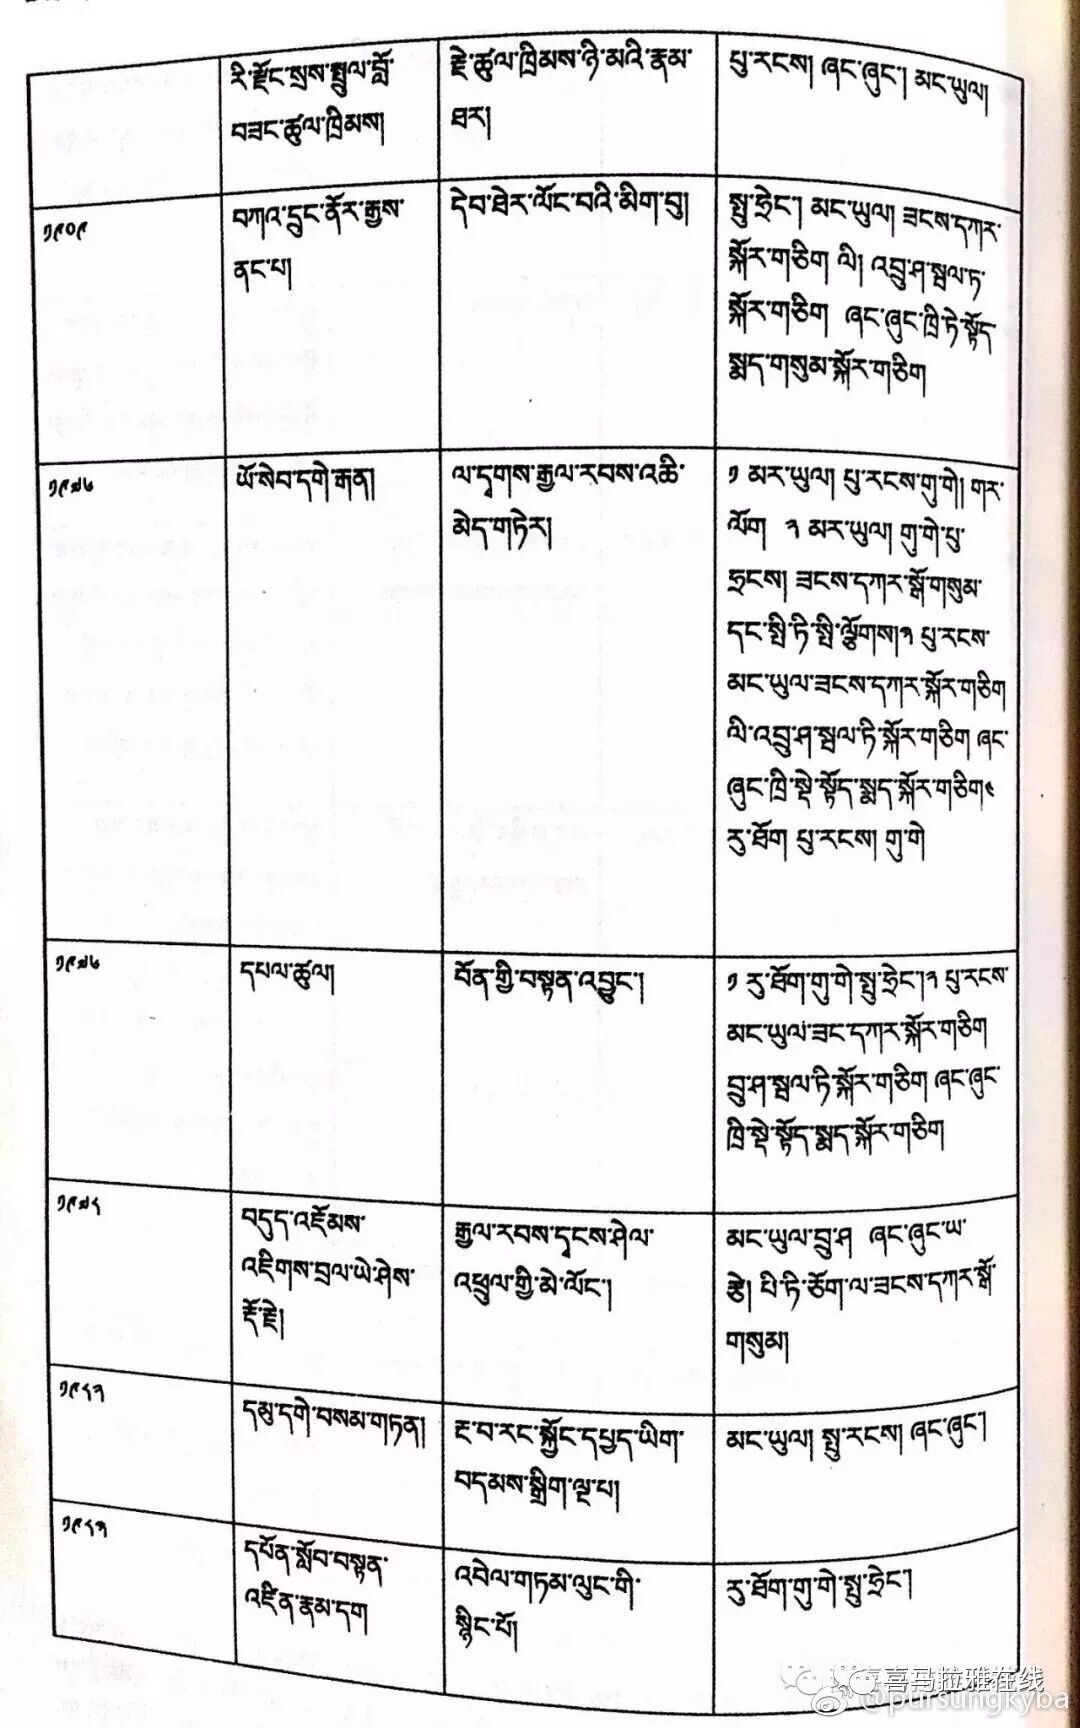 རི་རྫོང་སྲས་སྤྲུལ་བློ་
བཟང་ཚུལ་ཁྲིམས།
རྗེ་ཚུལ་ཁྲིམས་ཉི་མའི་རྣམ་
ཐར།
པུ་རངས། ཞང་ཞུང་། མང་ཡུལ།
༡༩༠༩
བཀའ་དྲུང་ནོར་རྒྱས་
ནང་པ།
དེབ་ཐེར་ལོང་བའི་མིག་བུ།
སྤུ་ཧྲེང་། མང་ཡུལ། ཟངས་དཀར་
སྐོར་གཅིག ལི། འབྲུ་ཤ་སྦལ་ཏ་
སྐོར་གཅིག ཞང་ཞུང་ཁྲི་ཏེ་སྟོད་
སྨད་གསུམ་སྐོར་གཅིག
༡༩༧༦
ཡོ་སེབ་དགེ་རྒན།
ལ་དྭགས་རྒྱལ་རབས་འཆི་
མེད་གཏེར།
༡ མར་ཡུལ། པུ་རངས་གུ་གེ། གར་
ལོག ༢ མར་ཡུལ། གུ་གེ་པུ་
ཧྲངས། ཟངས་དཀར་སྒོ་གསུམ་
དང་སྤི་ཏི་སྤི་ལྕོགས།༣ པུ་རངས་
མང་ཡུལ་ཟངས་དཀར་སྐོར་གཅིག
ལི་འབྲུ་ཤ་སྦལ་ཏི་སྐོར་གཅིག ཞང་
ཞུང་ཁྲི་སྡེ་སྟོད་སྨད་སྐོར་གཅིག༤
རུ་ཐོག པུ་རངས། གུ་གེ
༡༩༧༦
དཔལ་ཚུལ།
བོན་གྱི་བསྟན་འབྱུང་།
༡ རུ་ཐོག་གུ་གེ་སྤུ་ཧྲེང་།༢ པུ་རངས་
མང་ཡུལ་ཟང་དཀར་སྐོར་གཅིག
བྲུ་ཤ་སྦལ་ཏི་སྐོར་གཅིག ཞང་ཞུང་
ཁྲི་སྡེ་སྟོད་སྨད་སྐོར་གཅིག
༡༩༧༨
བདུད་འཇོམས་
འཇིགས་བྲལ་ཡེ་ཤེས་
རྡོ་རྗེ།
རྒྱལ་རབས་དྭངས་ཤེལ་
འཕྲུལ་གྱི་མེ་ལོང་།
མང་ཡུལ་བྲུ་ཤ ཞང་ཞུང་ཡ་
རྩེ། པི་ཏི་ཅོག་ལ་ཟངས་དཀར་སྒོ་
གསུམ།
༡༩༨༢
དམུ་དགེ་བསམ་གཏན།
རྔ་བ་རང་སྐྱོང་དཔྱད་ཡིག་
བདམས་སྒྲིག་ལྔ་པ།
མང་ཡུལ། སྤུ་རངས། ཞང་ཞུང་།
༡༩༨༣
དཔོན་སློབ་བསྟན་
འཛིན་རྣམ་དག
འབེལ་གཏམ་ལུང་གི་
སྙིང་པོ།
རུ་ཐོག་གུ་གེ་སྤུ་ཧྲེང་།
喜马拉雅在线
@pursungkyba